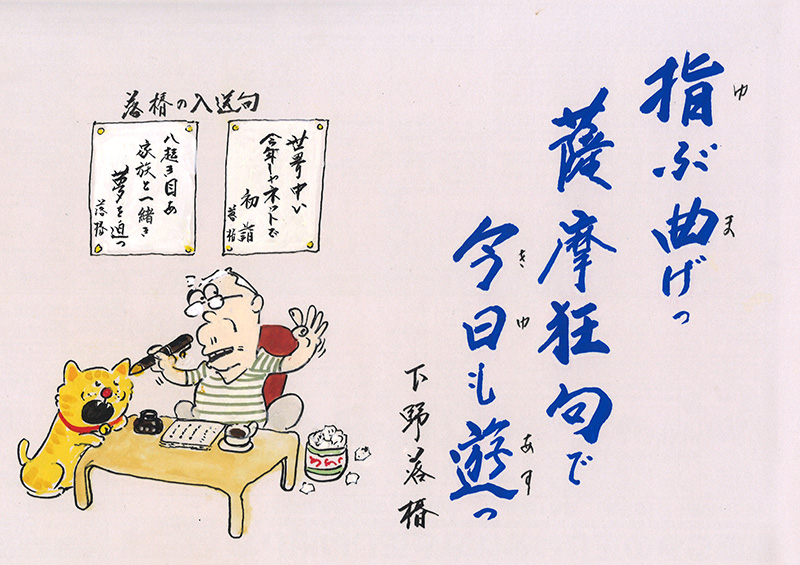 指ぶ曲げっ
ゆ
ま
薩摩狂句で
今日も遊っ
きゆ
あす
下野落椿
落椿の入選句
世界中い
今年しゃネットで
初詣
落椿
八起き目あ
家族と一緒き
夢を追っ
落椿